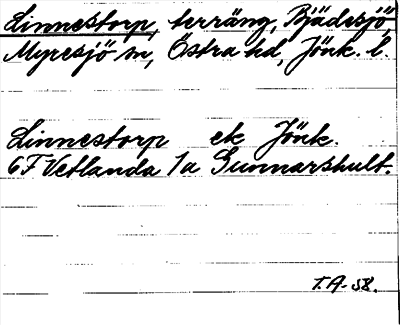 Linnestorp, terräng, Bjädesjö,
Myresjö sn, Östra hd, Jönk. l.
Linnestorp ek Jönk.
6F Vetlanda 1a Gunnarshult.
T.A-58.